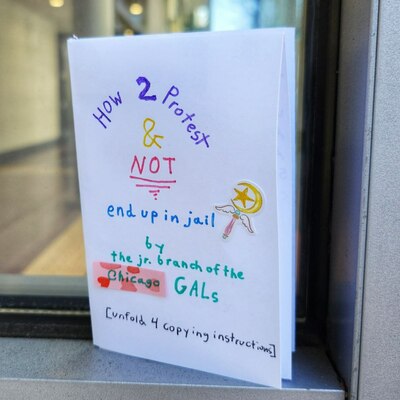 How 2 Protest
&
NOT
end up in jail
by
the jr. branch of the
Chicago GALs
[unfold 4 copying instructions]